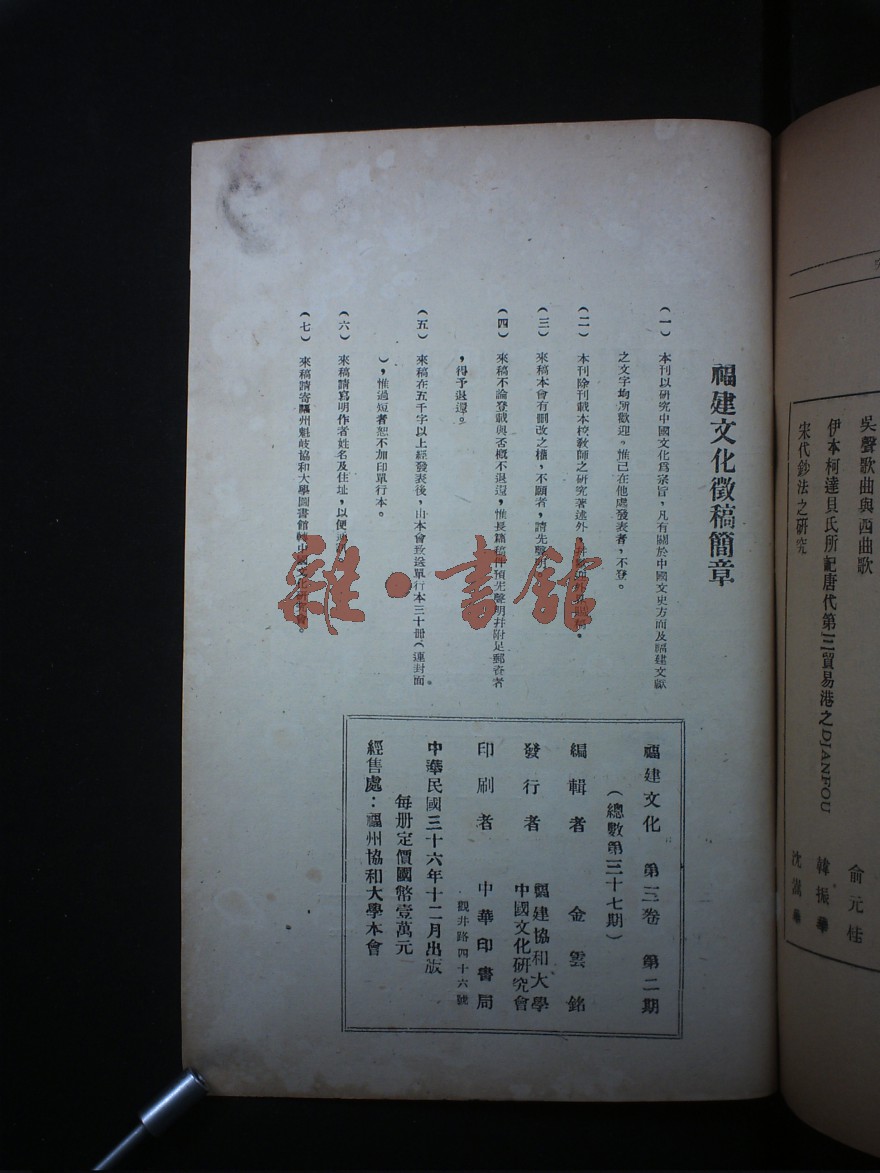 福建文化徵稿簡章
(一) 本刊以研究中國文化爲宗旨，凡有關於中國文史方面及福建文獻
之文字均所歡迎。惟已在他處發表者，不登。
(二) 本刊除刊載本校敎師之研究著述外，
(三) 來稿本會有刪改之權，不願者，請先聲明
(四) 來稿不論登載與否槪不退還，惟長篇稿件預先聲明并附足郵資者
，得予退還。
(五) 來稿在五千字以上經發表後，由本會致送單行本三十冊(連封面
)，惟過短者恕不加印單行本。
(六) 來稿請寫明作者姓名及住址，以便
(七) 來稿請寄福州魁岐協和大學圖書館轉中國文化研究會。
福建文化 第三卷 第二期
(總數第三十七期)
編輯者 金雲銘
發行者 福建協和大學
中國文化研究會
印刷者 中華印書局
觀井路四十六號
中華民國三十六年十二月出版
每册定價國幣壹萬元
經售處：福州協和大學本會
雜·書館
吳聲歌曲與西曲歌 俞元桂
伊本柯達貝氏所記唐代第三貿易港之DJANFOU 韓振華
宋代鈔法之研究 沈嵩華